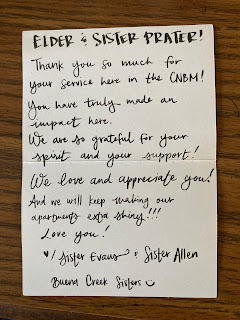 ELDER & SISTER PRATER!
Thank you so much for
your service here in the CNBM!
You have truly made an
impact here.
We are so grateful for your
spirit and your support!
We love and appreciate you!
And we will keep making our
apartments extra shiny!!!
Love you!
♥/ Sister Evans & Sister Allen
Buena Creek Sisters ☺